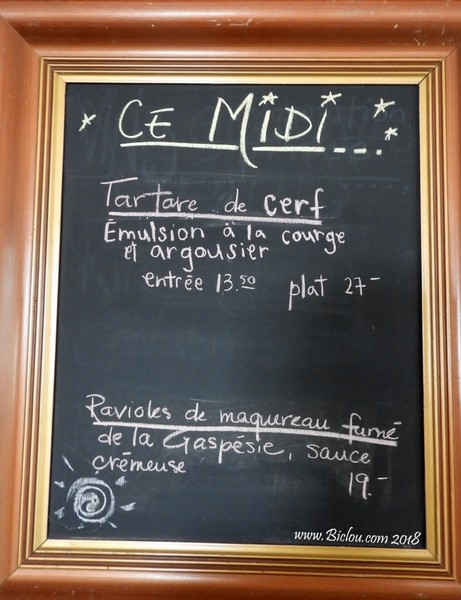 CE MIDI...
Tartare de cerf
Émulsion à la courge
et argousier
entrée 13.50 plat 27-
Ravioles de maquereau fumé
de la Gaspésie, sauce
crémeuse
19.-
www.Biclou.com 2018